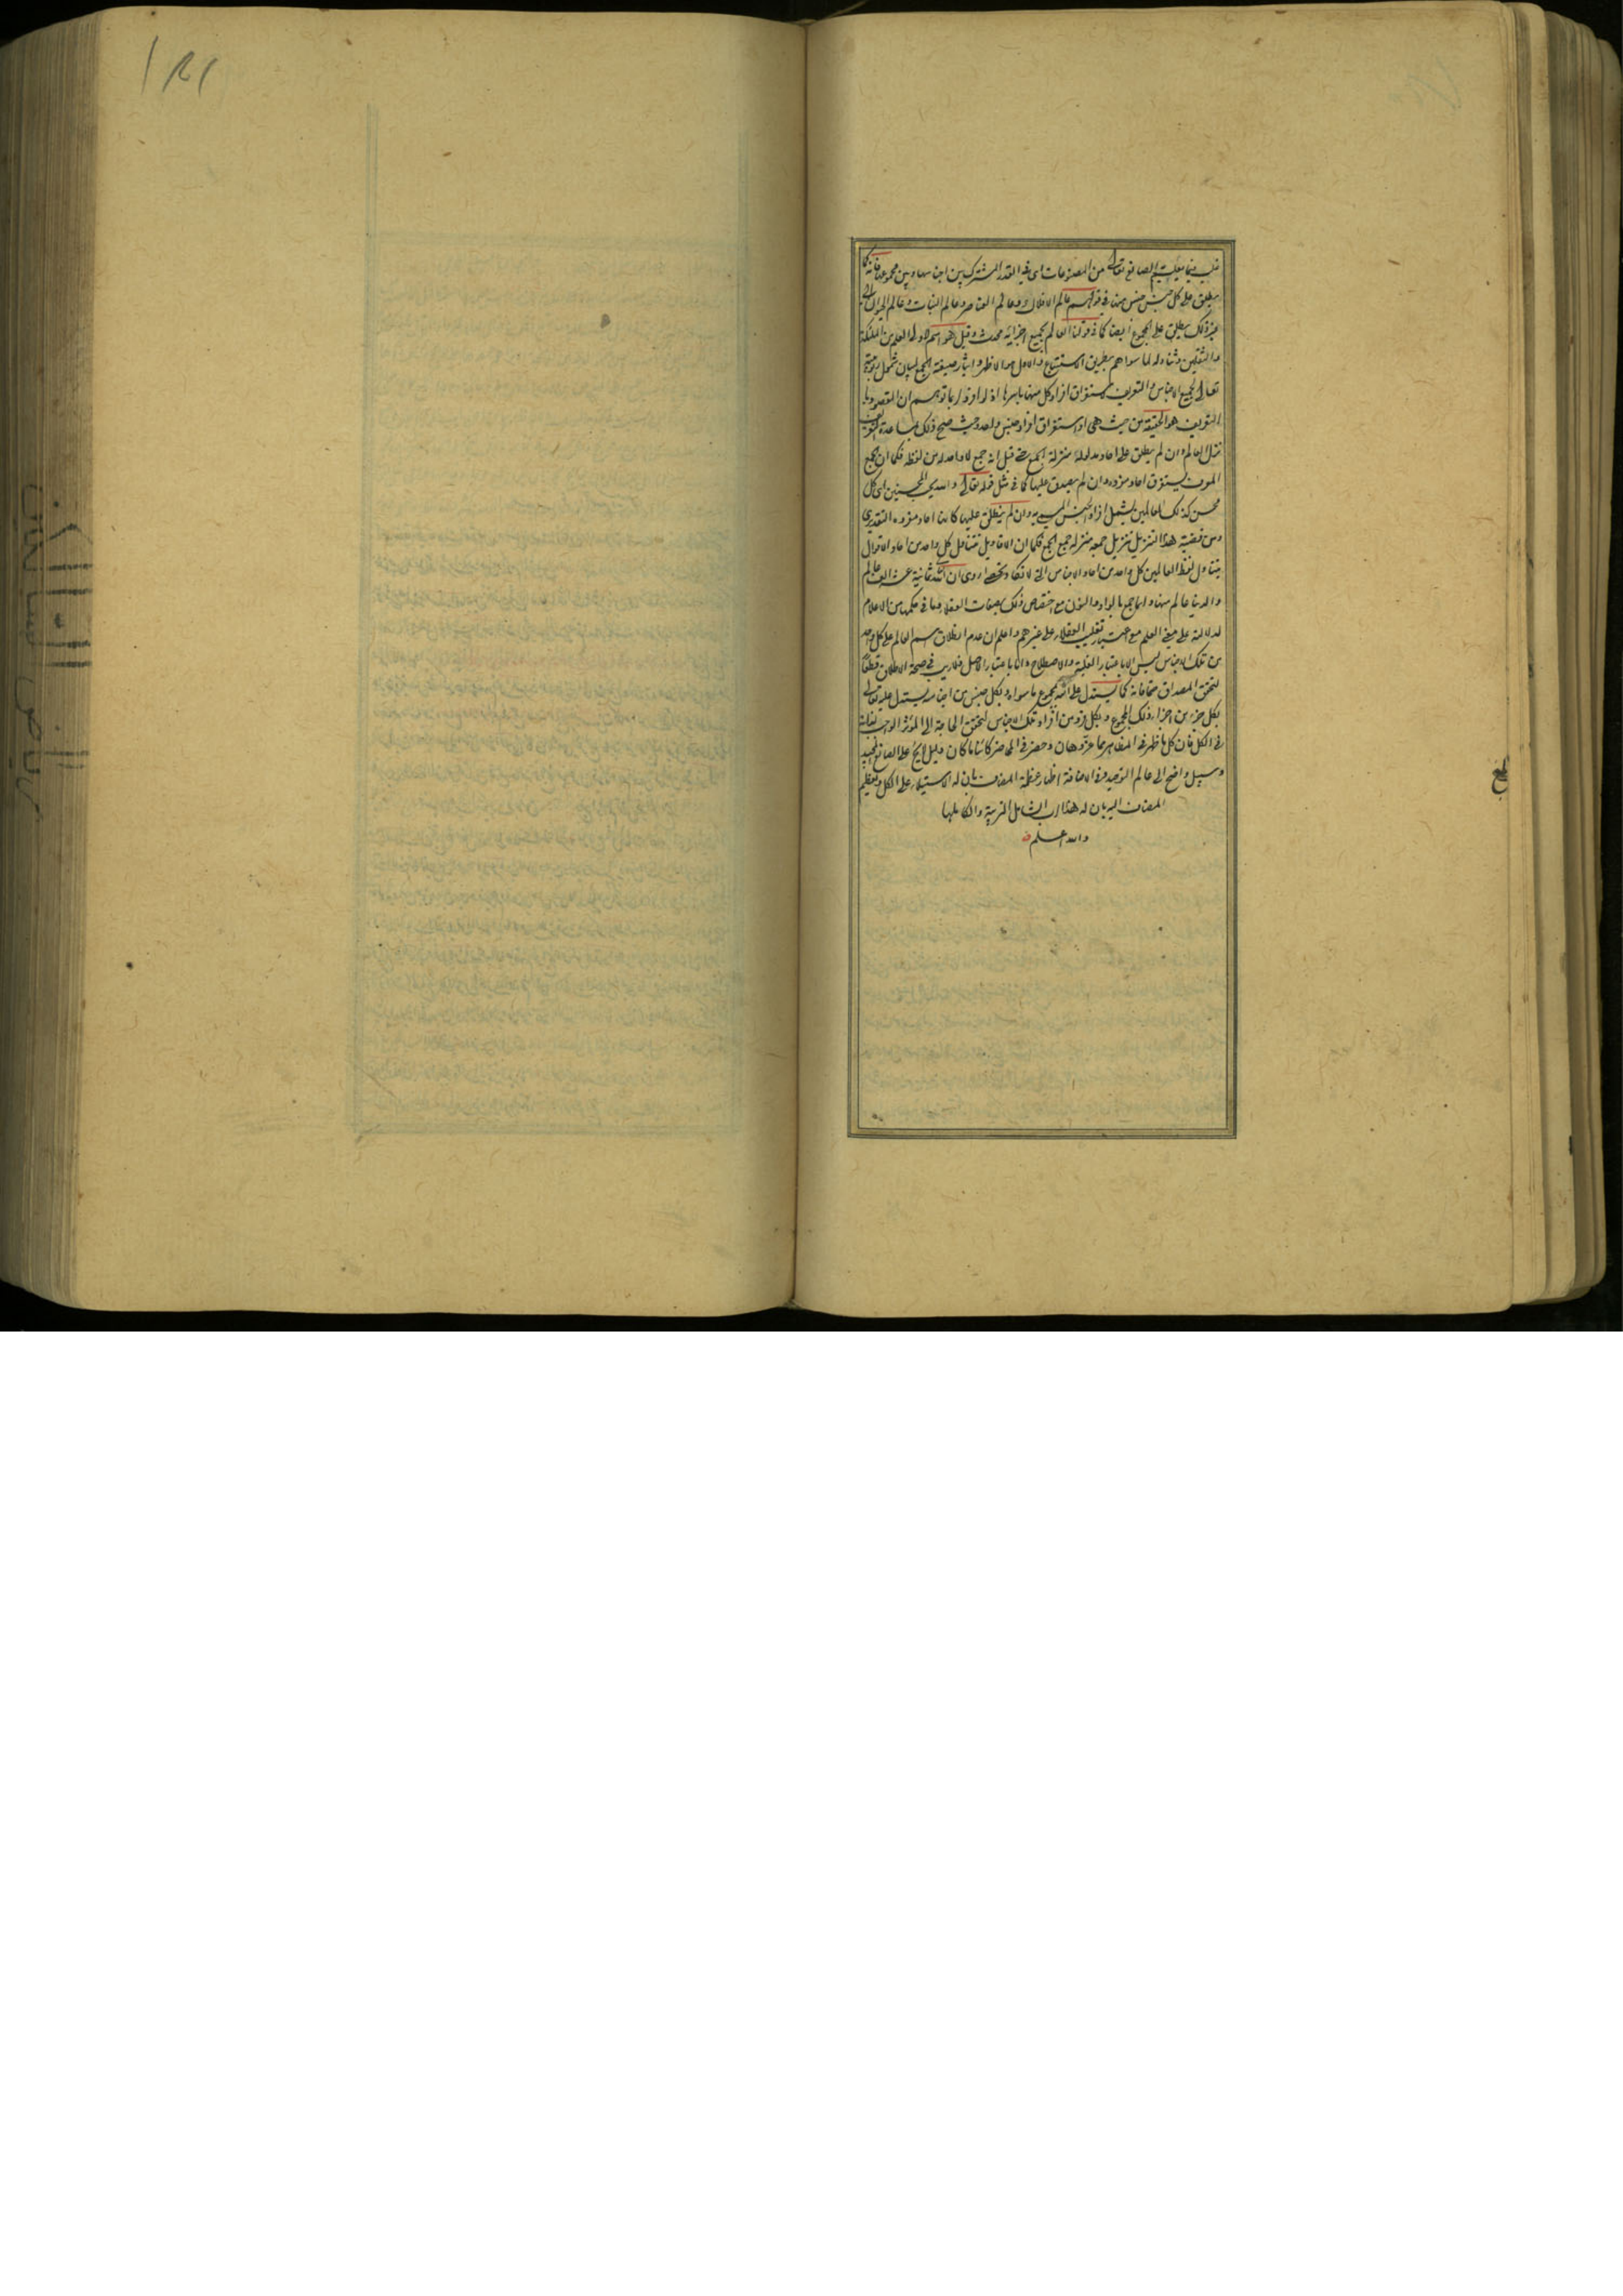 غلب فيما يعلم به الصانع تعالى من المصنوعات اى فى القدر المشترك بين اجناسها وبين مجموعها فانه كما
يطلق على كل جنس جنس منها فى قولهم عالم الافلاك وعالم العناصر وعالم النبات وعالم الحيوان الى
غير ذلك يطلق على المجموع ايضا كما فى قولنا العالم بجميع اجزائه محدث وقيل هو اسم لذوى العلم من الملئكة
والثقلين وتناوله لما سواهم بطريق الاستتباع والاول هو الاظهر وايثار صيغة الجمع لبيان شمول ربوبيته
تعالى لجميع الاجناس والتعريف لاستغراق افراد كل منها باسرها اذ لو افرد لربما توهم ان المقصود با
لتعريف هو الحقيقة من حيث هى او استغراق افراد جنس واحد حيث صح ذلك بمساعدة التعريف
نزل العالم وان لم يطلق على احاد مدلوله منزلة الجمع حتى قيل انه جمع لا واحد له من لفظه فكما ان الجمع
المعرف يستغرق احاد مفرده وان لم يصدق عليها كما فى مثل قوله تعالى والله يحب المحسنين اى كل
محسن كذلك العالمين يشمل افراد الجنس المسمى به وان لم ينطلق عليها كانها احاد مفرده التقديرى
ومن قضية هذا التنزيل تنزيل جمعه منزلة جمع الجمع فكما ان الاقاويل تتناول كل واحد من احاد الاقوال
يتناول لفظ العالمين كل واحد من احاد الاجناس التى لا تكاد تحصى روى ان لله تعالى ثمانية عشر الف عالم
والدنيا عالم منها وانما جمع بالواو والنون مع اختصاص ذلك بصفات العقلاء وما فى حكمها من الاعلام
لدلالته على معنى العلم مع اعتبار تغليب العقلاء على غيرهم واعلم ان عدم انطلاق اسم العالم على كل واحد
من تلك الاجناس ليس الا باعتبار الغلبة والاصطلاح واما باعتبار الاصل فلا ريب فى صحة الاطلاق قطعا
لتحقق المصداق حتما فانه كما يستدل على الله بمجموع ما سواه وبكل جنس من اجناسه يستدل عليه تعالى
بكل جزء من اجزاء ذلك المجموع وبكل فرد من افراد تلك الاجناس لتحقق الحاجة الى المؤثر الواجب لذاته
فى الكل فان كل ما ظهر فى المظاهر مما عز وهان وحضر فى المحاضر كائنا ما كان دليل لايح على الصانع المجيد
وسبيل واضح الى عالم التوحيد وفى الاضافة اظهار عظمة المضاف بان له الاستيلاء على الكل وتعظيم
المضاف اليه بان له هذا الرب الشامل التربية والكاملها
والله اعلم